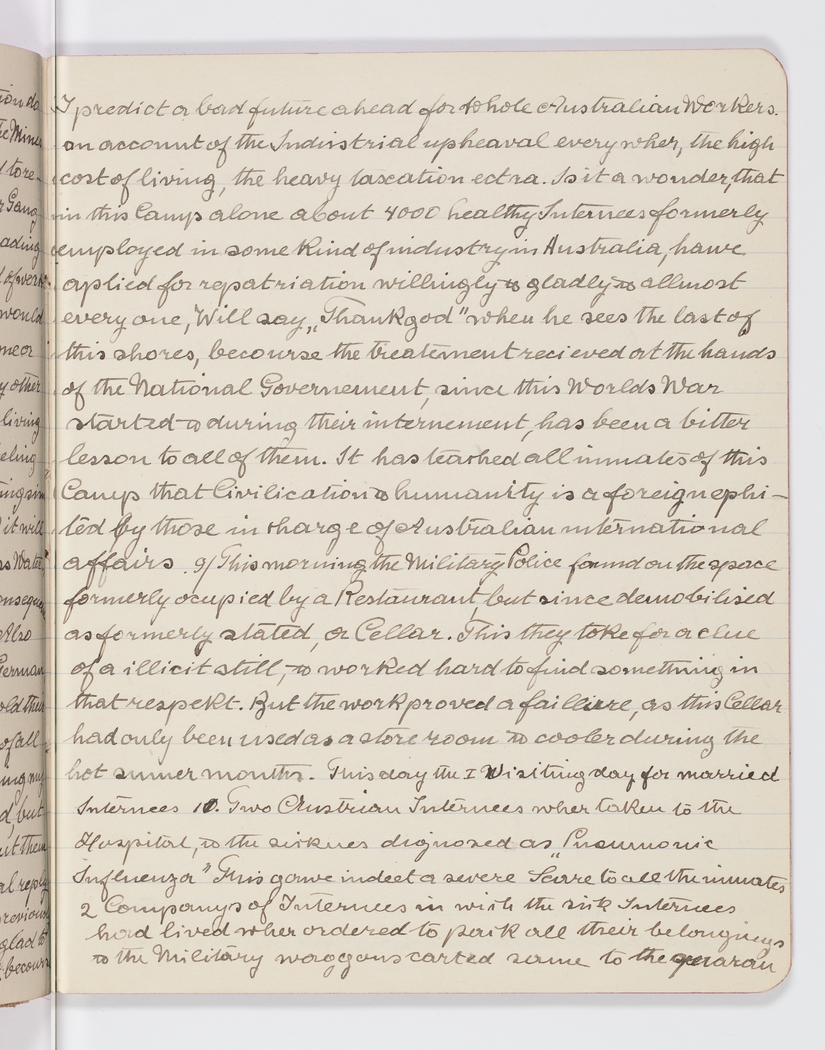 ion do
I predict a bad future ahead for whole Australian Workers.
he Mine
on account of the Indiustrial upheaval every wher, the high
cost of living, the heavy tascation ectra. Is it a wonder, that
r Gang
in this Camp alone about 4000 healthy Internees formerly
ading
employed in some kind of industry in Australia, have
aplied for repatriation willingly & gladly & allmost
would
every one, Will say „Thank god" when he sees the last of
this shores, becourse the treatement recieved at the hands
y other
of the National Governement, since this Worlds War
living
started & during their internement, has been a bitter
eling
lesson to all of them. It has teached all inmates of this
Camp that Civilication & humanity is a foreign ephi-
it will
ted by those in charge of Australian international
affairs. 9/ This morning the Military Police found on the space
formerly ocupied by a Restaurant, but since demobilised
Also
as formerly stated, a Cellar. This they toke for a clue
German
of a illicit still, & worked hard to find something in
old their
that respekt. But the work proved a faillure, as this Cellar
of all
had only been used as a store room & cooler during the
hot sumer months. This day the I Wisiting day for married
d, but
Internees 10. Two Austrian Internees wher taken to the
ut them
Hospital, & the siknes dignosed as „Pneumonic
al reply
Influenza" This gawe indeet a severe Scare to all the inmates
revious
2 Companys of Internees in wish the sik Internees
glad to
had lived wher ordered to paik all their belongings
becours
& the Military waggons carted same to the quaran